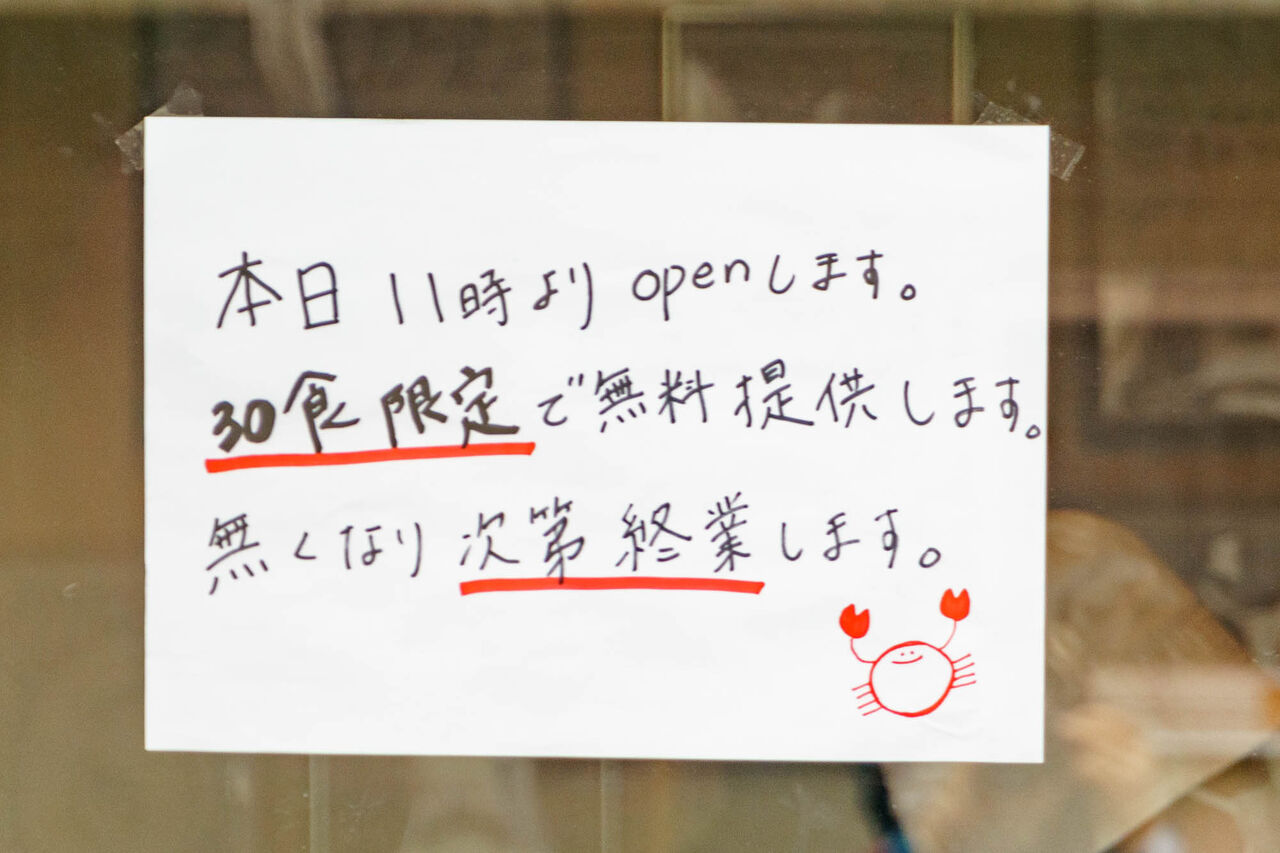 本日 11時より openします。
30食限定で無料提供します。
無くなり次第終業します。